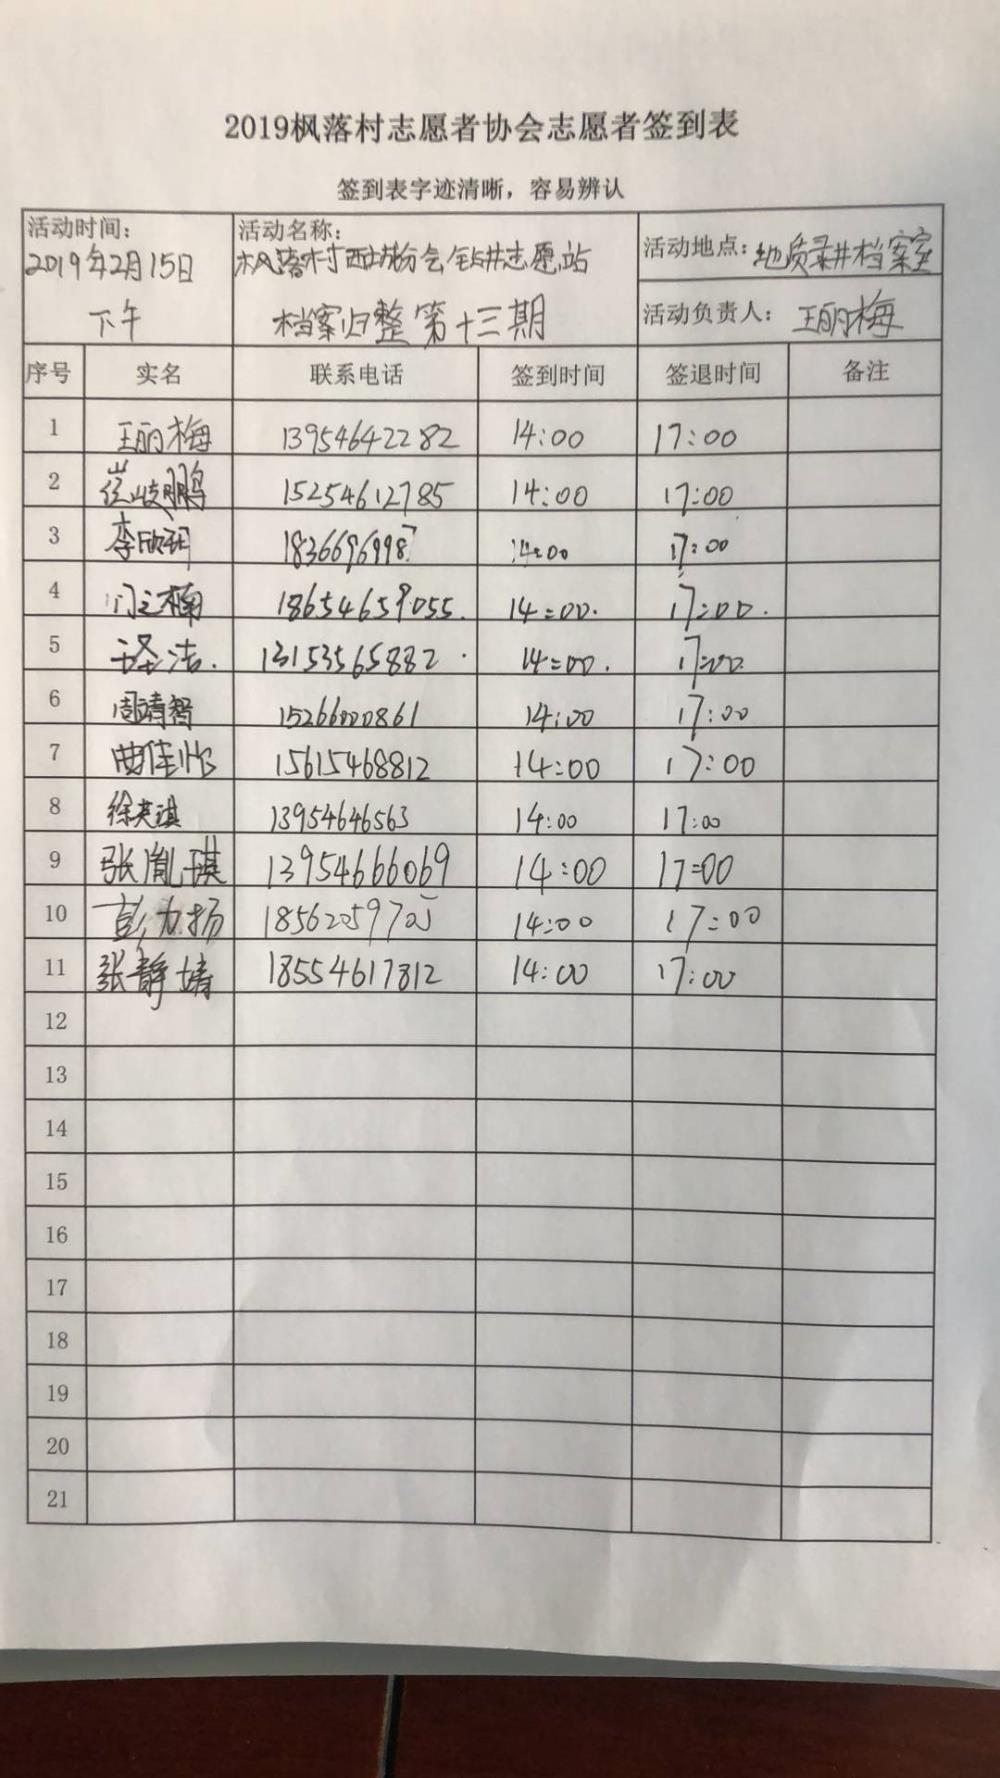 2019枫落村志愿者协会志愿者签到表
签到表字迹清晰，容易辨认
活动时间：
2019年2月15日
下午
活动名称：
枫落村西城分会钻井志愿站
档案归整第十三期
活动地点：地质录井档案室
活动负责人：王丽梅
序号 实名 联系电话 签到时间 签退时间 备注
1 王丽梅 13954642282 14:00 17:00
2 崔岐鹏 15254612785 14:00 17:00
3 李欣玥 18366969987 14:00 17:00
4 闫之楠 18654659055. 14:00. 17:00.
5 洁. 13153565882. 14:00. 17:00.
6 周靖智 15266000861 14:00 17:00
7 曲佳怡 15615468812 14:00 17:00
8 徐英淇 13954646563 14:00 17:00
9 张胤琪 13954666069 14:00 17:00
10 彭力扬 14:00 17:00
11 张静婧 18554617812 14:00 17:00
12
13
14
15
16
17
18
19
20
21